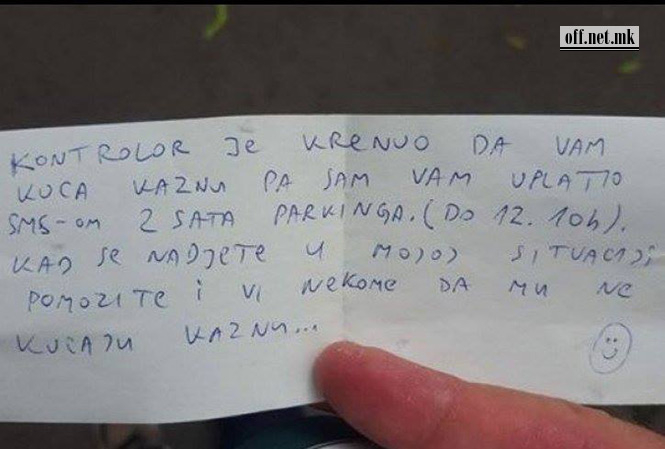 off.net.mk
KONTROLOR JE KRENUO DA VAM
KUCA KAZNU PA SAM VAM UPLATIO
SMS-om 2 SATA PARKINGA. (DO 12.10h).
KAD SE NADJETE U MOJOJ SITUACIJI
POMOZITE i VI NEKOME DA MU NE
KUCAJU KAZNU...